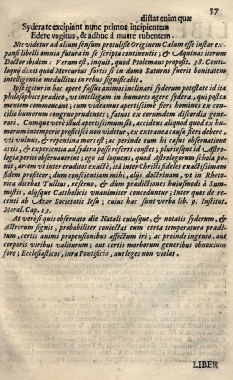 37
distat enim quæ
Sydera te excipiant nunc primos incipientem
Edere vagitus, & adhuc à matre rubentem.
Nec videtur ad alium sensum protulisse Origenem Cælum esse instar ex-
pansi libelli omnia futura in se scripta continentis; & Aquinas iterum
Doctor ibidem: Verum est, inquit, quod Ptolemæus proposit. 38. Centi-
loquij dixit quod Mercurius fortis si in domo Saturni fuerit bonitatem
intelligentiæ medullitus in rebus significabit.
Ipse igitur in hac opere fassus animos inclinari syderum potestate id ita
philosophice prædico, vt intelligam in humores agere sydera, qui posted
mentem commoueant; cum videamus apertissimè fieri homines ex con-
cilio humorum congruo prudentes; fatuos ex eorumdem discordia gene-
rari. Cumque verò illud apertissimum sit, accidens aliquod quod ex hu-
morum intemperie proficisci non videtur, ex extranea causa fieri debere,
vti vulnus, & repentina mors est; ac perinde cum hi casus obseruatione
artis, & experientia ad sydera posse referri constet; plurimosque id Astro-
logia peritis obseruarint; ego id loquens, quod Astrologorum schola po-
nit, artem vt inter eruditos exalto, ità inter Christi fideles exactissimam
fidem profiteor, dum conscientiam mihi, alijs doctrinam, vt in Rheto-
rica dicebat Tullius, refero, & dum prædictiones huiusmodi à Sum-
mistis, alijsque Catholicis vnanimiter concedantur; Inter quos de re-
centi ab Azor Societatis Iesu, cuius hæc sunt verba lib. 9. Institut.
Moral. Cap. 13.
At verò si quis obseruato die Natali cuiusque, & notatis syderum, &
Astrorum signis, probabiliter conijectat eum certa temperatura prædi-
tum, certis animi propensionibus affectum iri; ac proinde ingenio, aut
corporis viribus valiturum; aut certis morborum generibus obnoxium
fore; Ecclesiasticos, iura Pontificia, aut leges non violat.
LIBER